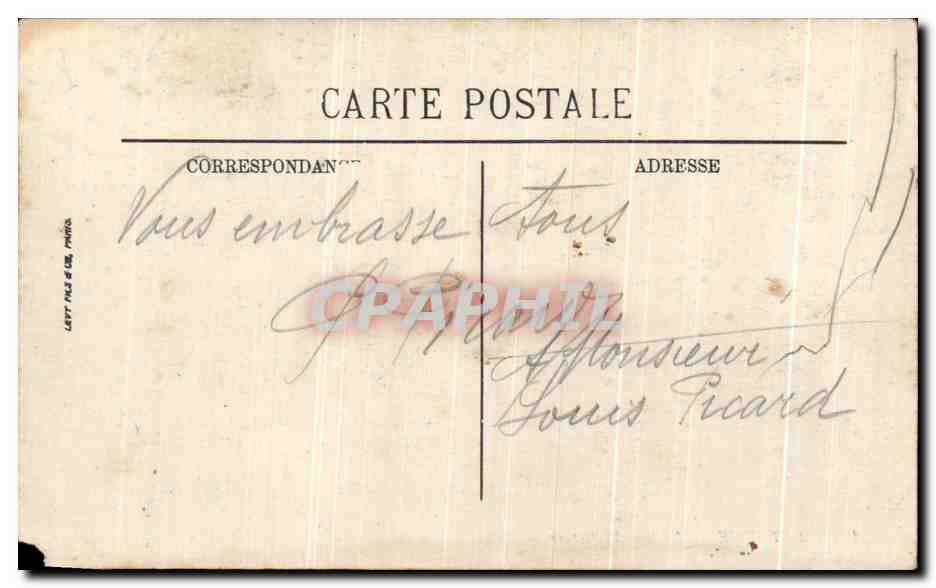 CARTE POSTALE
CORRESPONDANCE
ADRESSE
LEVY FILS & CIE, PARIS.
Vous embrasse tous
CPAPHIL
A Monsieur
Louis Picard